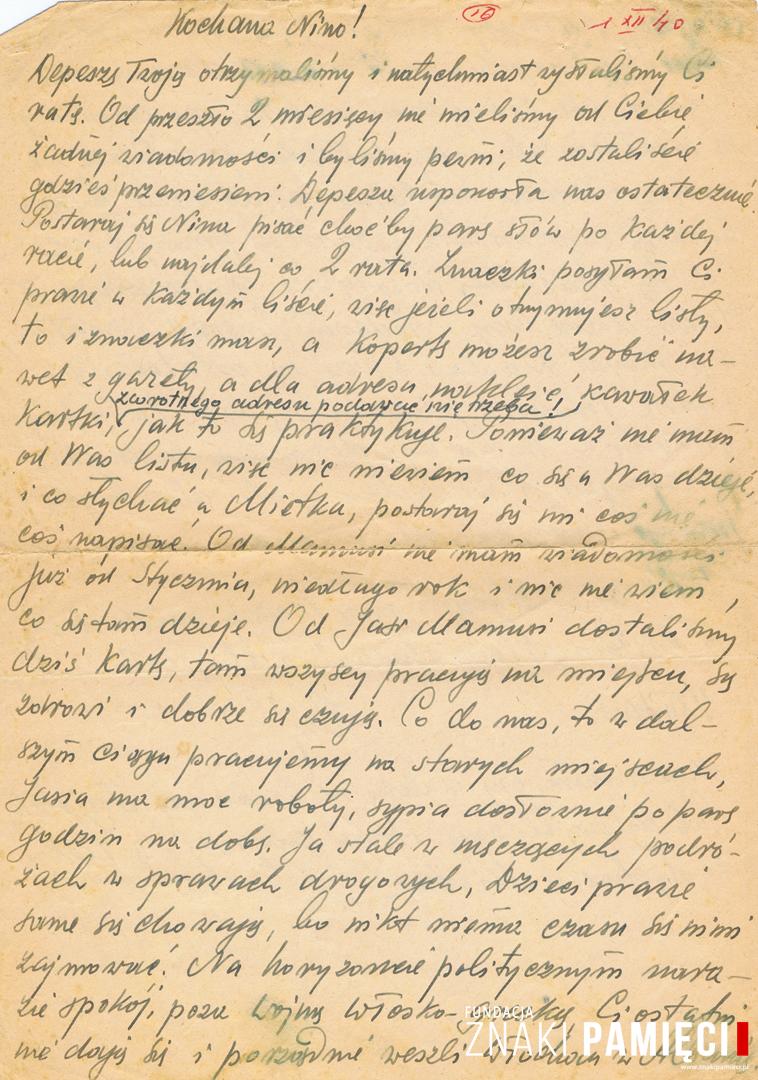 Kochana Nino!
10
1 XII 40
Depeszę Twoją otrzymaliśmy i natychmiast wysłaliśmy Ci
ratę. Od przeszło 2 miesięcy nie mieliśmy od Ciebie
żadnej wiadomości i byliśmy pewni, że zostaliście
gdzieś przeniesieni. Depesza nas ostatecznie.
Postaraj się Nina pisać choćby parę słów po każdej
racie, lub najdalej co 2 rata. Znaczki posyłam Ci
prawie w każdym liście, więc jeżeli otrzymujesz listy,
to i znaczki masz, a kopertę możesz zrobić na-
wet z gazety, a dla adresu nakleić kawałek
zwrotnego adresu podawać nie trzeba!
kartki, jak to się praktykuje. Ponieważ nie mam
od Was listu, więc nic nie wiem co się u Was dzieje,
i co słychać u Mietka, postaraj się mi coś nie
coś napisać. Od Mamusi nie mam wiadomości
już od Stycznia, niedługo rok i nic nie wiem,
co się tam dzieje. Od Jasi Mamusi dostaliśmy
dziś kartę, tam wszyscy pracują na miejscu, są
zdrowi i dobrze się czują. Co do nas, to w dal-
szym ciągu pracujemy na starych miejscach,
Jasia ma moc roboty, sypia dosłownie po parę
godzin na dobę. Ja stale w męczących podró-
żach w sprawach drogowych, Dzieci prawie
same się chowają, bo nikt niema czasu się nimi
zajmować. Na horyzoncie politycznym nara-
zie spokój, poza wojną Włosko- Ci ostatni
nie dają się i porządnie weszli Włochom w
FUNDACJA
ZNAKI PAMIĘCI
www.znakipamieci.pl